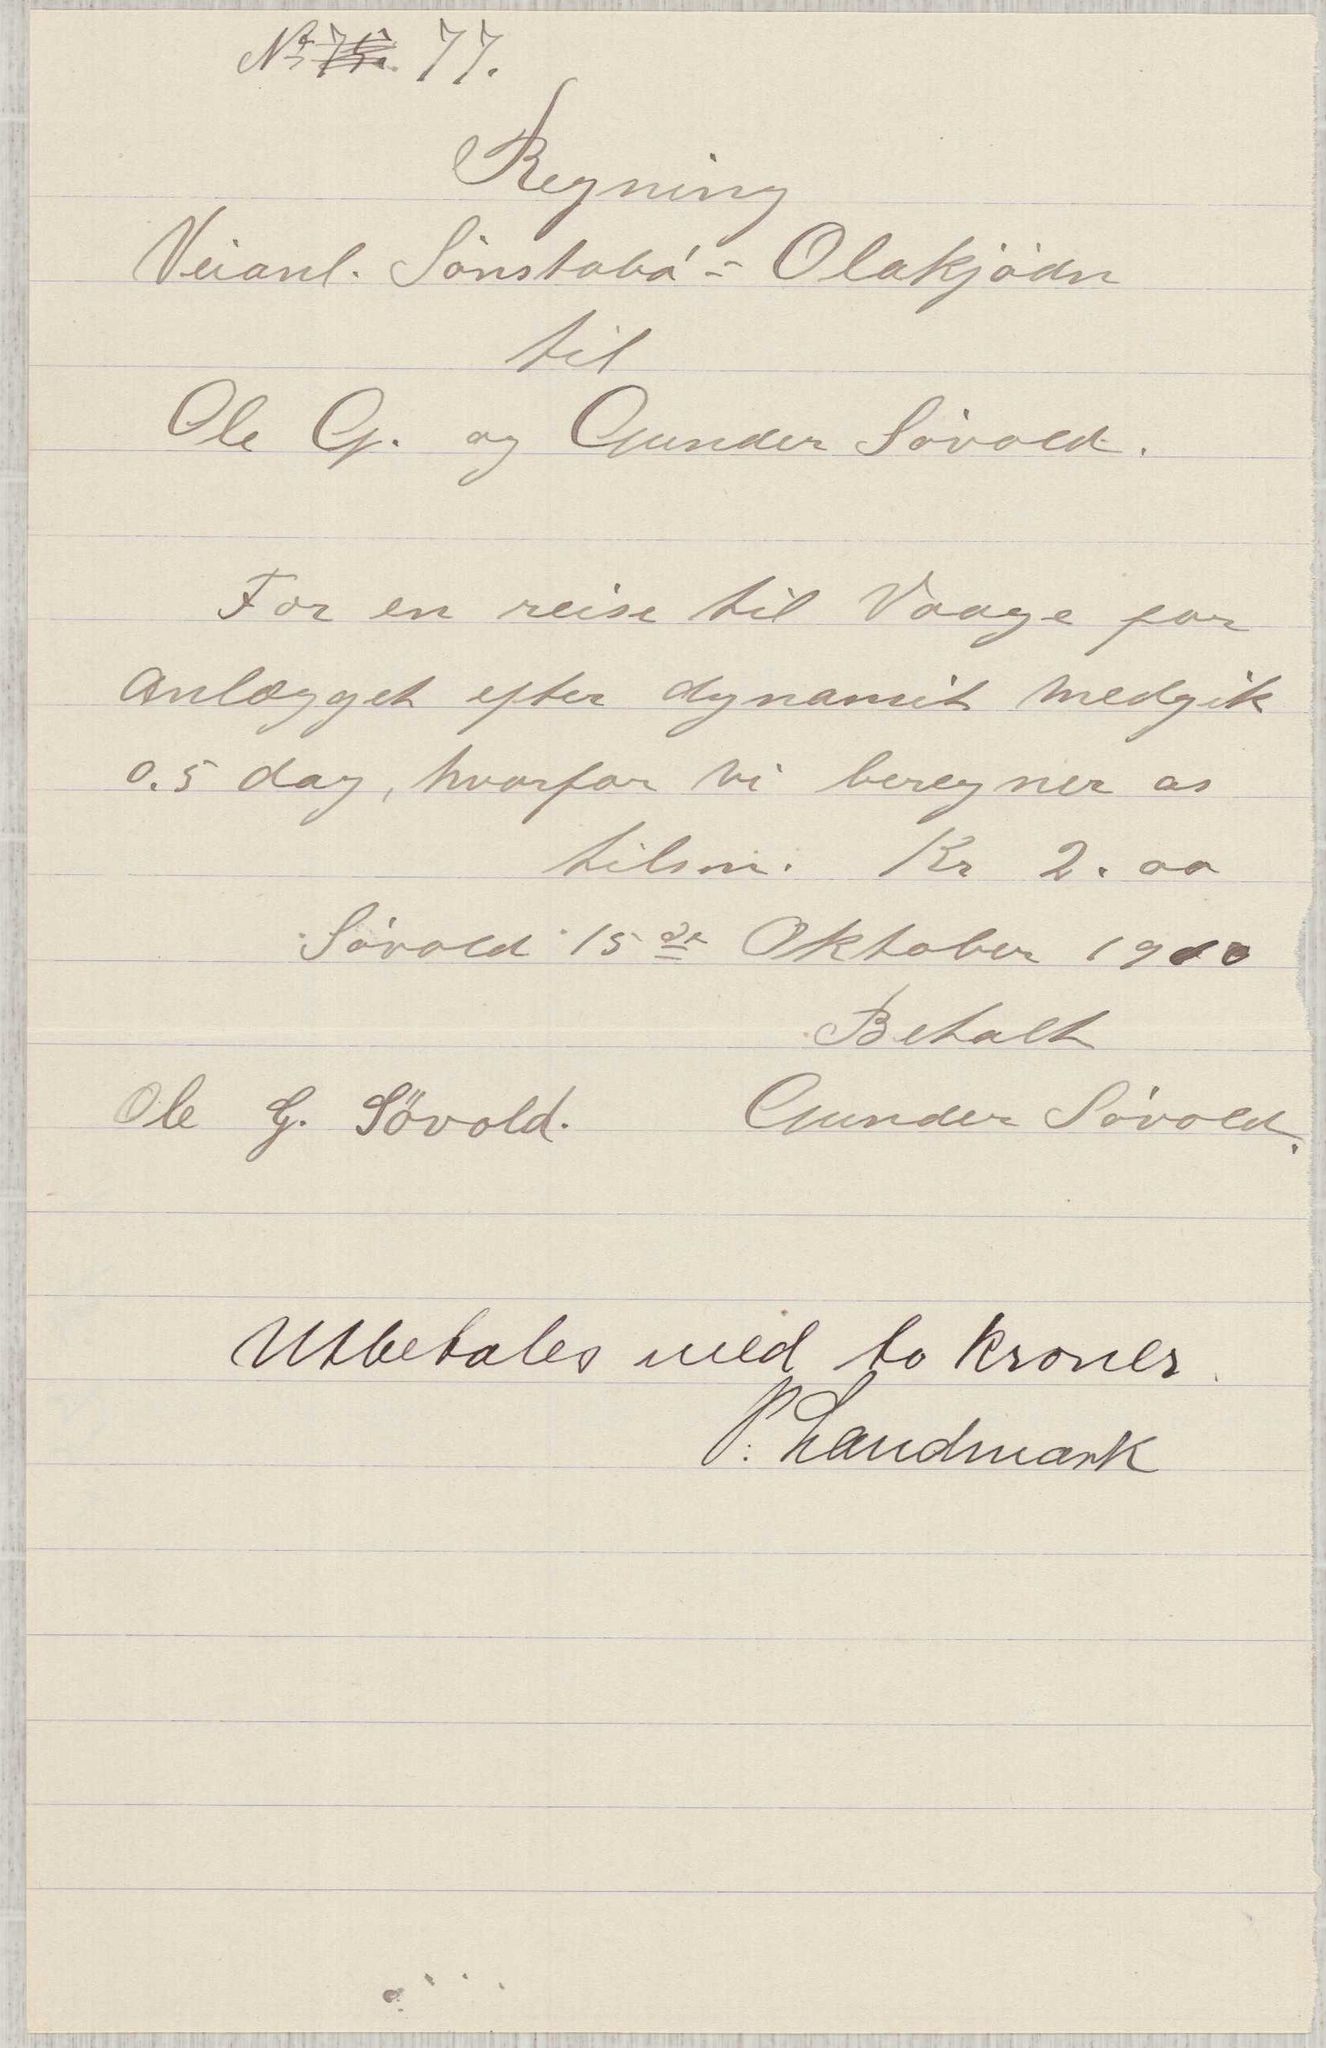 No 77.
Regning
Veianl. Sönstabö - Olakjödn
til
Ole G. og Gunder Sövold.
For en reise til Vaage for
anlægget efter dynamit medgik
0.5 dag, hvorfor vi beregner os
tilsm. Kr 2.00
Sövold 15de Oktober 1910
Betalt
Ole G. Sövold. Gunder Sövold.
Utbetales med to kroner.
P. Landmark